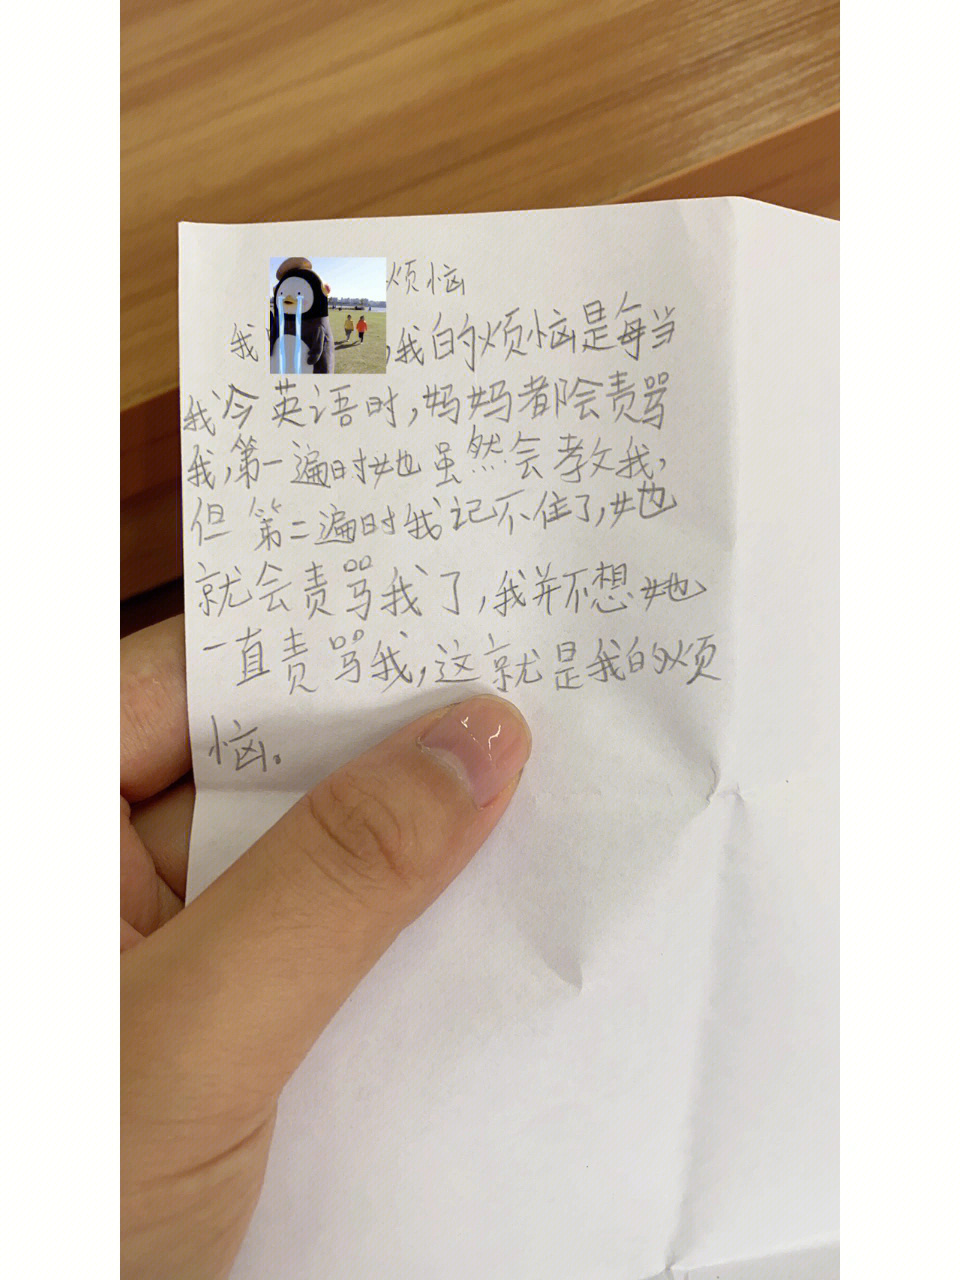 烦恼
我 ,我的烦恼是每当
我冷英语时,妈妈都会责骂
我,第一遍时她虽然会教我,
但第二遍时我记不住了,她
就会责骂我了,我并不想她
一直责骂我,这就是我的烦
恼。